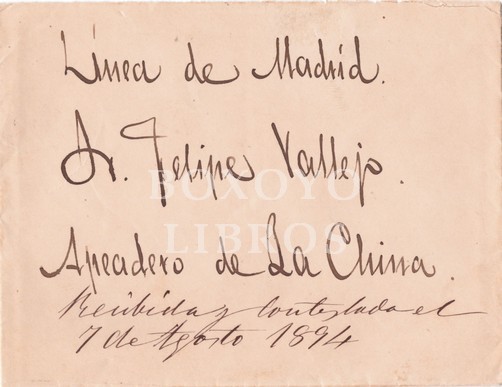 Línea de Madrid.
Sr. Felipe Vallejo.
BOXOYO
LIBROS
Apeadero de La China.
Recibida y contestada el
7 de Agosto 1894